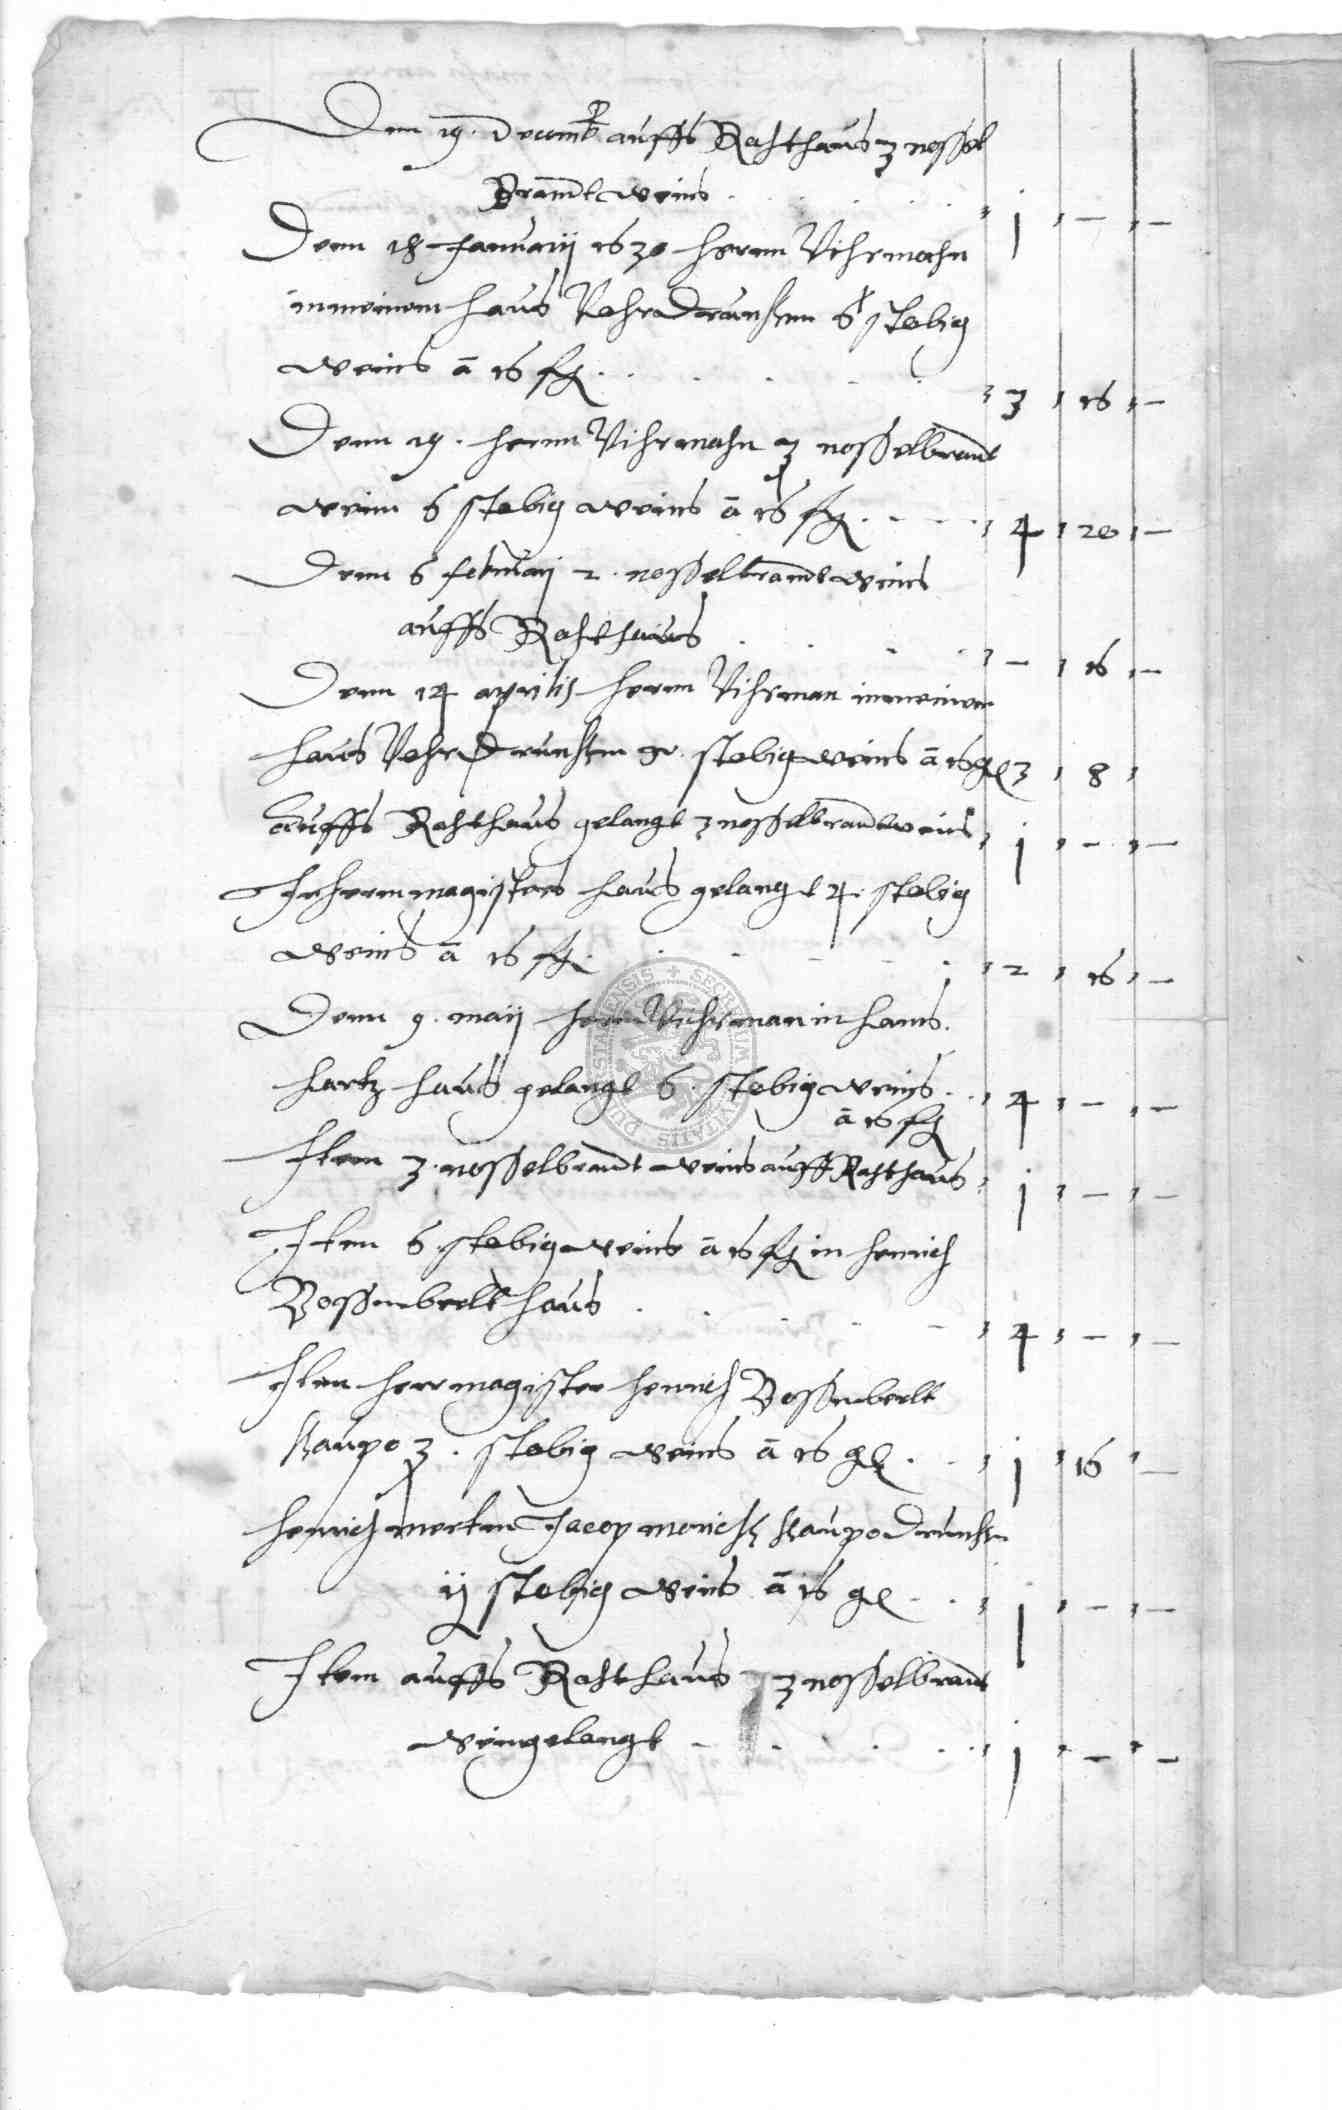 Den 19. Decemb auffs Rahthaus 3 nossel
Brandtweins . . . . . 1 — —
Denn 18 Januarij 1630 herrn Vihrmahn
in meinem haus Vehrdrunken stebig
weins a 16 gl . . . . 3 16 —
Denn 19. herrn Vihrmahn 3 nosselbrandt
wein 6 stebig weins a 16 gl . . . 4 20 —
Denn 6 februarij 2. nosselbrandtweins
auffs Rahthaus . . . . — 16 —
Denn 14 aprilis herrn Vihrman in meinem
haus Vehrdrunken stebig weins a 16 gl 3 8
auffs Rahthaus gelangt 3 nosselbrandtweins 1 — —
In herrn magisters haus gelangt 4. stebig
weins a 16 gl . . . . 2 16 —
Denn 9. maij herrn Vihrman in hans
hartz haus gelangt 6. stebig weins . . 4 — —
a 16 gl
Item 3. nosselbrandt weins auff Rahthaus 1 — —
Item 6 stebig weins a 16 gl in henrich
Bossenbertt haus . . . . 4 — —
Item herr magister henrich Bossenbertt
3. stebig weins a 16 gl . . 1 16 —
henrich merten Jacop drunken
ij stebig weins a 16 gl . . 1 — —
Item auffs Rahthaus 3 nosselbrandt
wein gelangt . . . . 1 — —
DUDERSTADIENSIS SECRETUM CIVITATIS